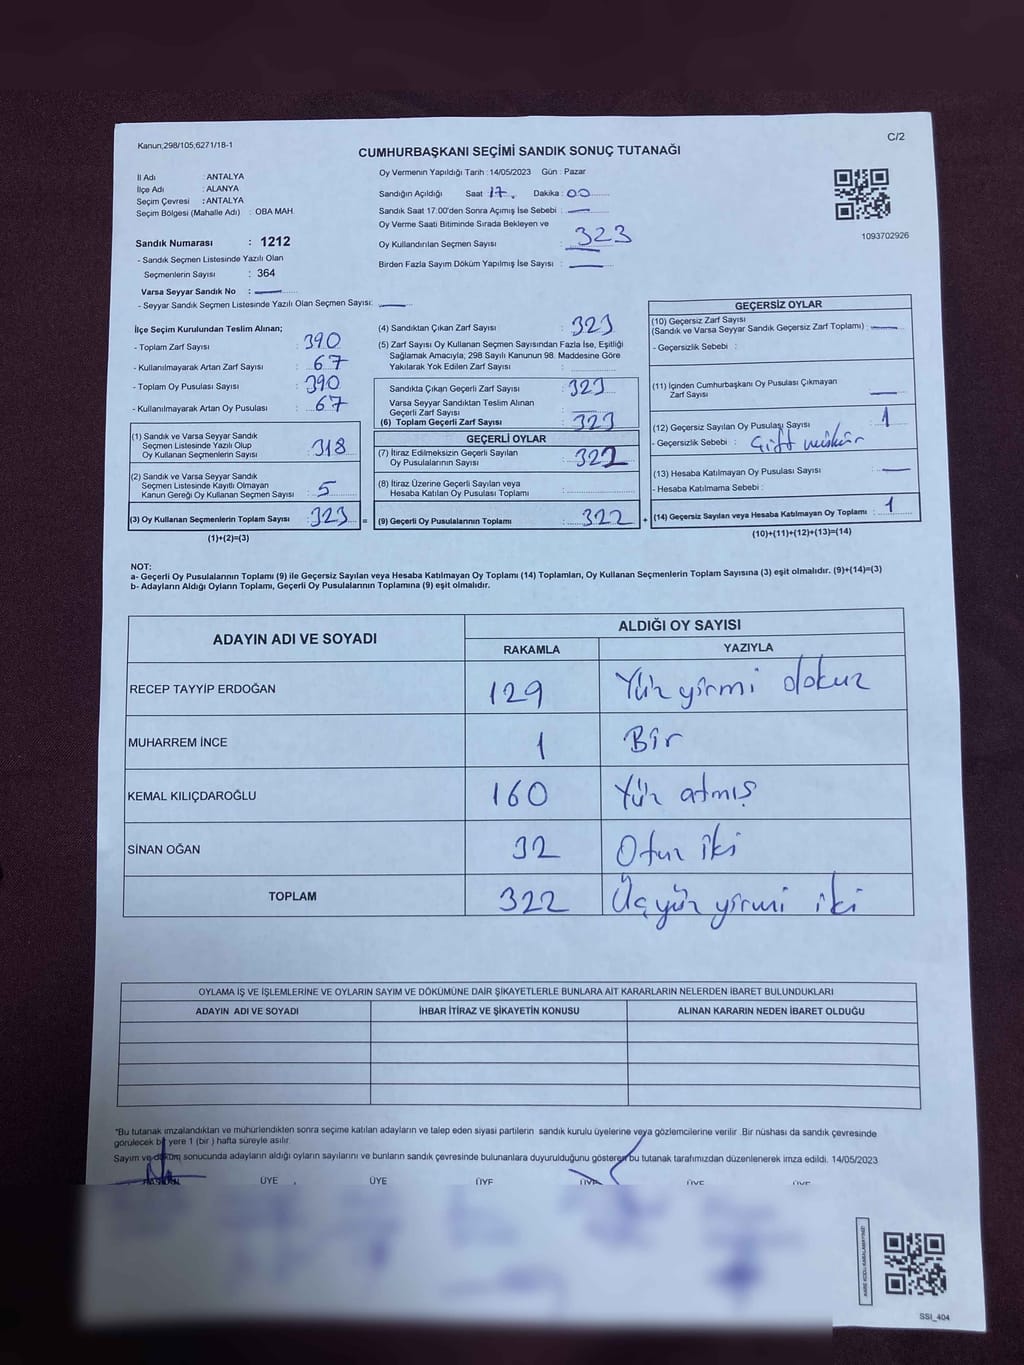 Kanun,298/105,6271/18-1
C/2
CUMHURBAŞKANI SEÇİMİ SANDIK SONUÇ TUTANAĞI
İl Adı : ANTALYA
İlçe Adı : ALANYA
Seçim Çevresi : ANTALYA
Seçim Bölgesi (Mahalle Adı) : OBA MAH.
Sandık Numarası : 1212
- Sandık Seçmen Listesinde Yazılı Olan
Seçmenlerin Sayısı : 364
Varsa Seyyar Sandık No :
- Seyyar Sandık Seçmen Listesinde Yazılı Olan Seçmen Sayısı:
Oy Vermenin Yapıldığı Tarih : 14/05/2023 Gün : Pazar
Sandığın Açıldığı Saat : 17 Dakika : 00
Sandık Saat 17:00'den Sonra Açımış İse Sebebi :
Oy Verme Saati Bitiminde Sırada Bekleyen ve
Oy Kullandırılan Seçmen Sayısı : 323
Birden Fazla Sayım Döküm Yapılmış İse Sayısı :
1093702926
İlçe Seçim Kurulundan Teslim Alınan;
- Toplam Zarf Sayısı : 390
- Kullanılmayarak Artan Zarf Sayısı : 67
- Toplam Oy Pusulası Sayısı : 390
- Kullanılmayarak Artan Oy Pusulası : 67
(1) Sandık ve Varsa Seyyar Sandık
Seçmen Listesinde Yazılı Olup
Oy Kullanan Seçmenlerin Sayısı : 318
(2) Sandık ve Varsa Seyyar Sandık
Seçmen Listesinde Kayıtlı Olmayan
Kanun Gereği Oy Kullanan Seçmen Sayısı : 5
(3) Oy Kullanan Seçmenlerin Toplam Sayısı : 323 =
(1)+(2)=(3)
(4) Sandıktan Çıkan Zarf Sayısı : 323
(5) Zarf Sayısı Oy Kullanan Seçmen Sayısından Fazla İse, Eşitliği
Sağlamak Amacıyla, 298 Sayılı Kanunun 98. Maddesine Göre
Yakılarak Yok Edilen Zarf Sayısı :
Sandıkta Çıkan Geçerli Zarf Sayısı : 323
Varsa Seyyar Sandıktan Teslim Alınan
Geçerli Zarf Sayısı :
(6) Toplam Geçerli Zarf Sayısı : 323
GEÇERLİ OYLAR
(7) İtiraz Edilmeksizin Geçerli Sayılan
Oy Pusulalarının Sayısı : 322
(8) İtiraz Üzerine Geçerli Sayılan veya
Hesaba Katılan Oy Pusulası Toplamı :
(9) Geçerli Oy Pusulalarının Toplamı : 322 +
GEÇERSİZ OYLAR
(10) Geçersiz Zarf Sayısı
(Sandık ve Varsa Seyyar Sandık Geçersiz Zarf Toplamı) :
- Geçersizlik Sebebi :
(11) İçinden Cumhurbaşkanı Oy Pusulası Çıkmayan
Zarf Sayısı :
(12) Geçersiz Sayılan Oy Pusulası Sayısı : 1
- Geçersizlik Sebebi : Çift mühür
(13) Hesaba Katılmayan Oy Pusulası Sayısı :
- Hesaba Katılmama Sebebi :
(14) Geçersiz Sayılan veya Hesaba Katılmayan Oy Toplamı : 1
(10)+(11)+(12)+(13)=(14)
NOT:
a- Geçerli Oy Pusulalarının Toplamı (9) ile Geçersiz Sayılan veya Hesaba Katılmayan Oy Toplamı (14) Toplamları, Oy Kullanan Seçmenlerin Toplam Sayısına (3) eşit olmalıdır. (9)+(14)=(3)
b- Adayların Aldığı Oyların Toplamı, Geçerli Oy Pusulalarının Toplamına (9) eşit olmalıdır.
ADAYIN ADI VE SOYADI ALDIĞI OY SAYISI
RAKAMLA YAZIYLA
RECEP TAYYİP ERDOĞAN 129 Yüz yirmi dokuz
MUHARREM İNCE 1 Bir
KEMAL KILIÇDAROĞLU 160 Yüz atmış
SİNAN OĞAN 32 Otuz iki
TOPLAM 322 Üç yüz yirmi iki
OYLAMA İŞ VE İŞLEMLERİNE VE OYLARIN SAYIM VE DÖKÜMÜNE DAİR ŞİKAYETLERLE BUNLARA AİT KARARLARIN NELERDEN İBARET BULUNDUKLARI
ADAYIN ADI VE SOYADI İHBAR İTİRAZ VE ŞİKAYETİN KONUSU ALINAN KARARIN NEDEN İBARET OLDUĞU
*Bu tutanak imzalandıktan ve mühürlendikten sonra seçime katılan adayların ve talep eden siyasi partilerin sandık kurulu üyelerine veya gözlemcilerine verilir .Bir nüshası da sandık çevresinde
görülecek bir yere 1 (bir ) hafta süreyle asılır.
Sayım ve döküm sonucunda adayların aldığı oyların sayılarını ve bunların sandık çevresinde bulunanlara duyurulduğunu gösteren bu tutanak tarafımızdan düzenlenerek imza edildi. 14/05/2023
BAŞKAN ÜYE ÜYE ÜYE ÜYE ÜYE ÜYE
SSI_404